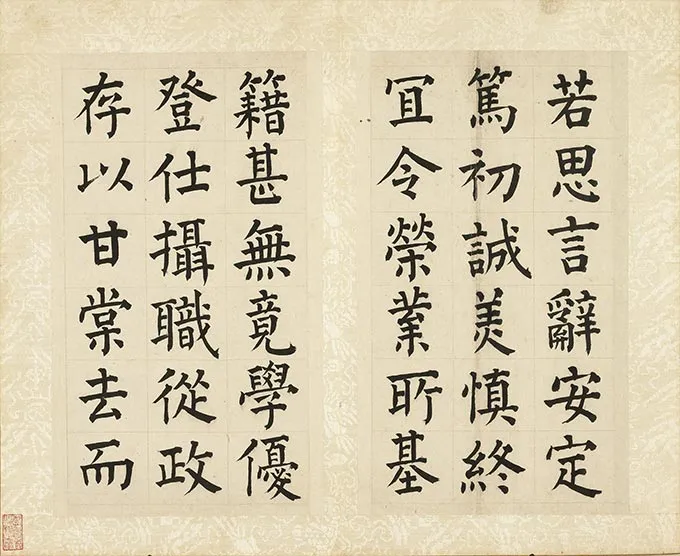 若思言辭安定
篤初誠美慎終
宜令榮業所基
籍甚無竟學優
登仕攝職從政
存以甘棠去而